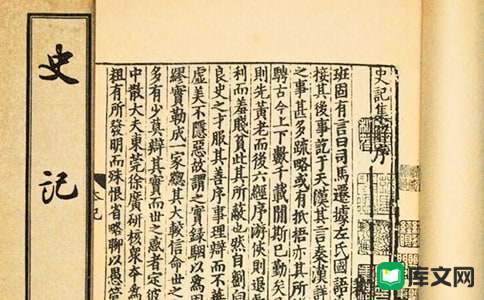 史記集解序
班固有言曰司馬遷據左氏國語
接其後事訖于天漢其言秦漢詳
之事甚多疏略或有抵捂亦其所
聘古今上下數千載間斯已勤矣
則先黃老而後六經序游俠則退
利而羞賤貧此其所蔽也然自劉向
良史之才服其善序事理辯而不
虛美不隱惡故謂之實錄駰以爲固
繆實勒成一家緫其大較信命世之
多有少真辯其實而世之惑者定彼
中散大夫東莞徐廣研核衆本爲
粗有所發明而殊恨省略聊以愚管
史記
库文网